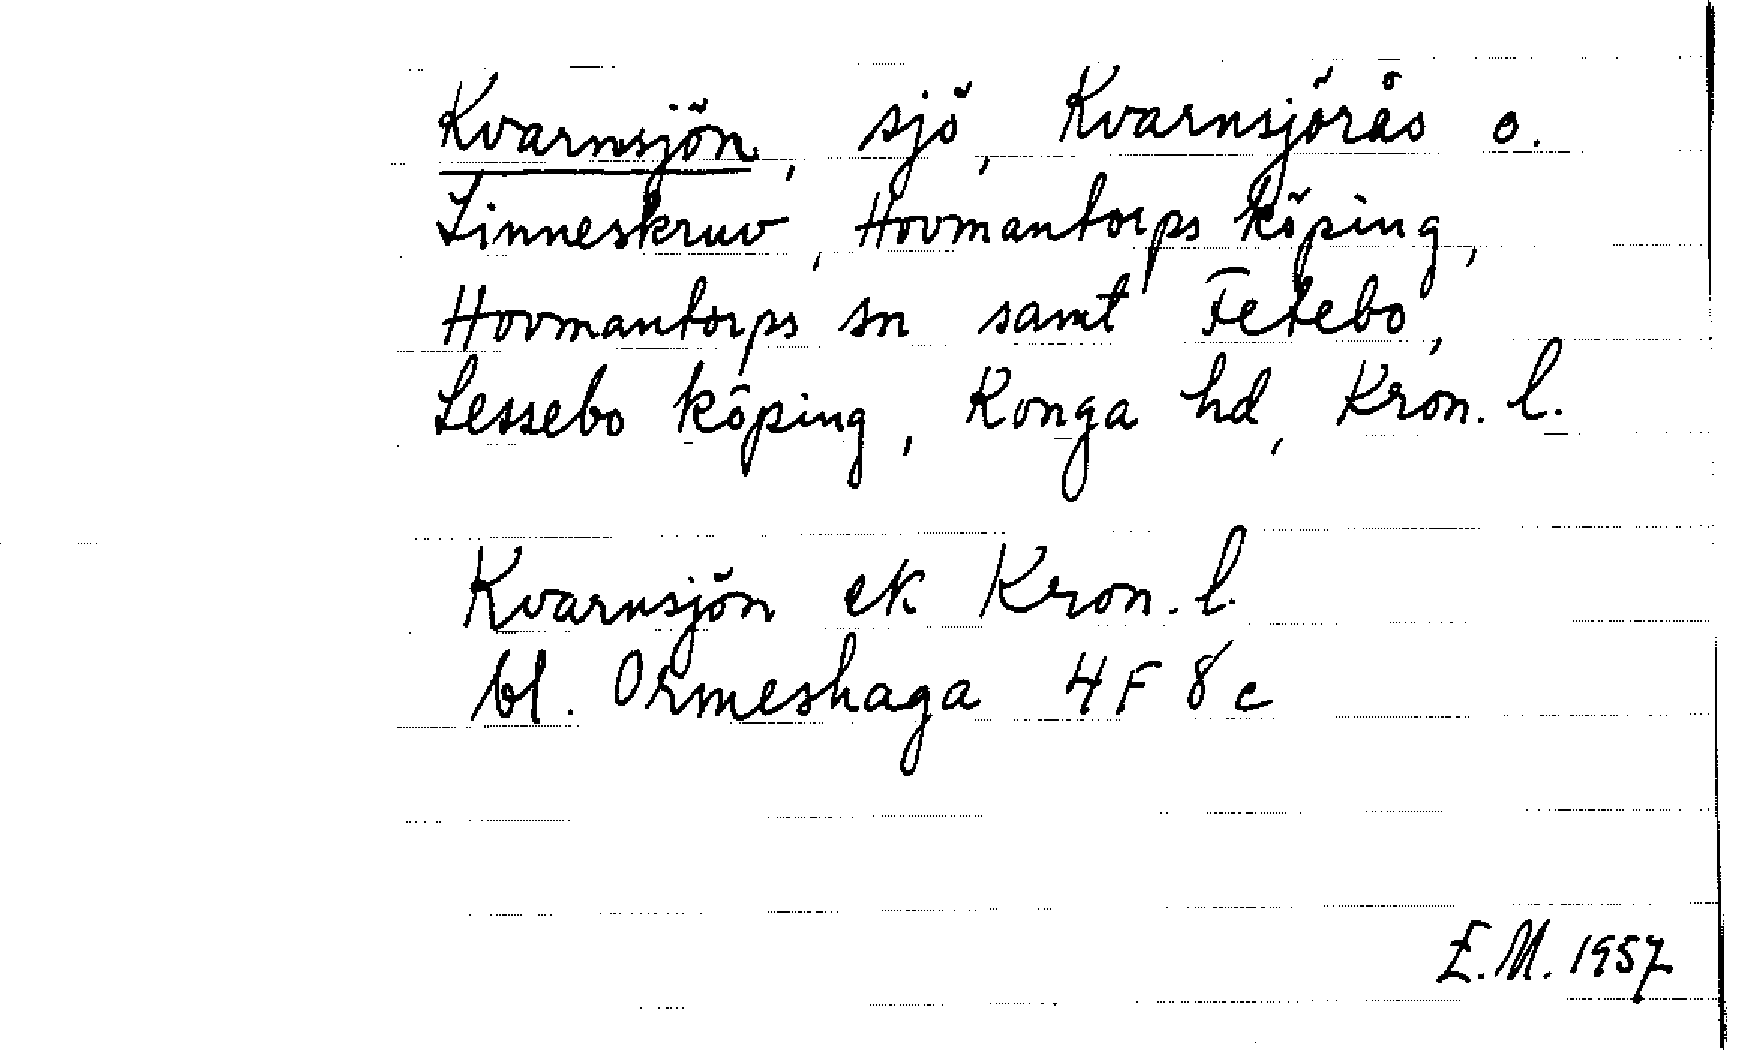 Kvarnsjön, sjö, Kvarnsjöräs o.
Linneskruv, Hovmantorps köping,
Hovmantorps sn samt Fetebo,
Lessebo köping, Konga hd, Kron. l.
Kvarnsjön ek Kron. l.
bl. Ormeshaga 4F 8c
E.M. 1957